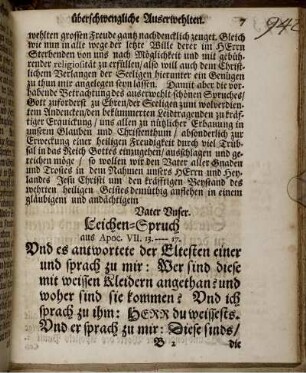 überschwengliche Auserwehlten. 7
wehlten grossen Freude gantz nachdencklich zeuget. Gleich
wie nun in alle wege der letzte Wille derer im HErrn
Sterbenden von uns nach Mögligkeit und mit gebüh-
render religiosität zu erfüllen/also will auch dem Christ-
lichem Verlangen der Seeligen hierunter ein Genügen
zu thun mir angelegen seyn lassen. Damit aber die vor-
habende Betrachtung des auserwehlt-schönen Spruches/
Gott zuforderst zu Ehren/der Seeligen zum wolverdien-
tem Andencken/den bekümmerten Leidtragenden zu kräff-
tiger Erquickung / uns allen zu nützlicher Erbauung in
unserm Glauben und Christenthum / absonderlich zur
Erweckung einer heiligen Freudigkeit durch viel Trüb-
sal in das Reich Gottes einzugehen/ausschlagen und ge-
reichen möge / so wollen wir den Vater aller Gnaden
und Trostes in dem Nahmen unsers HErrn und Hey-
landes Jesu Christi um den kräfftigen Beystand des
wehrten heiligen Geistes demüthig anflehen in einem
gläubigem und andächtigem
Vater Unser.
Leichen-Spruch
aus Apoc. VII. 13.----17.
Und es antwortete der Eltesten einer
und sprach zu mir: Wer sind diese
mit weissen Kleidern angethan? und
woher sind sie kommen? Und ich
sprach zu ihm: HERR du weissests.
Und er sprach zu mir: Diese sinds/
B 2 die